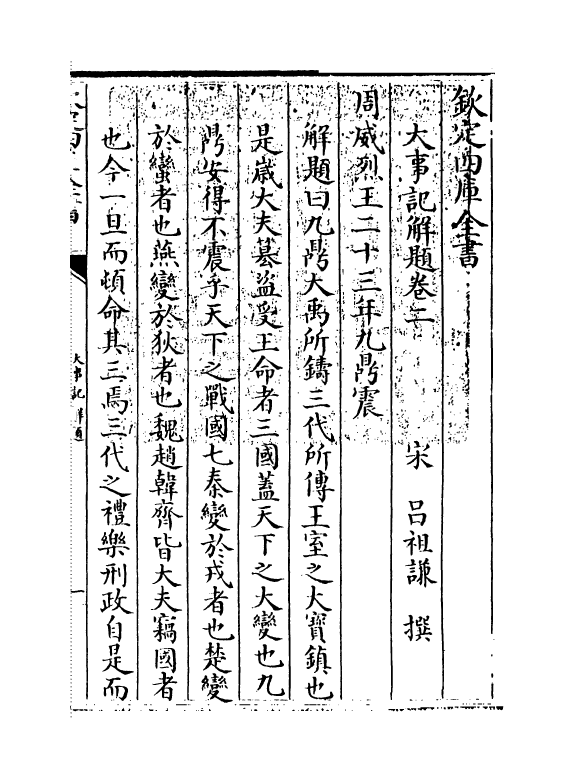 欽定四庫全書
大事記解題卷二
宋 呂祖謙 撰
周威烈王二十三年九鼎震
解題曰九鼎大禹所鑄三代所傳王室之大寶鎮也
是嵗大夫簒盜受王命者三國蓋天下之大變也九
鼎安得不震乎天下之戰國七秦變於戎者也楚變
於蠻者也燕變於狄者也魏趙韓齊皆大夫竊國者
也今一旦而頓命其三焉三代之禮樂刑政自是而
大事記解題
一